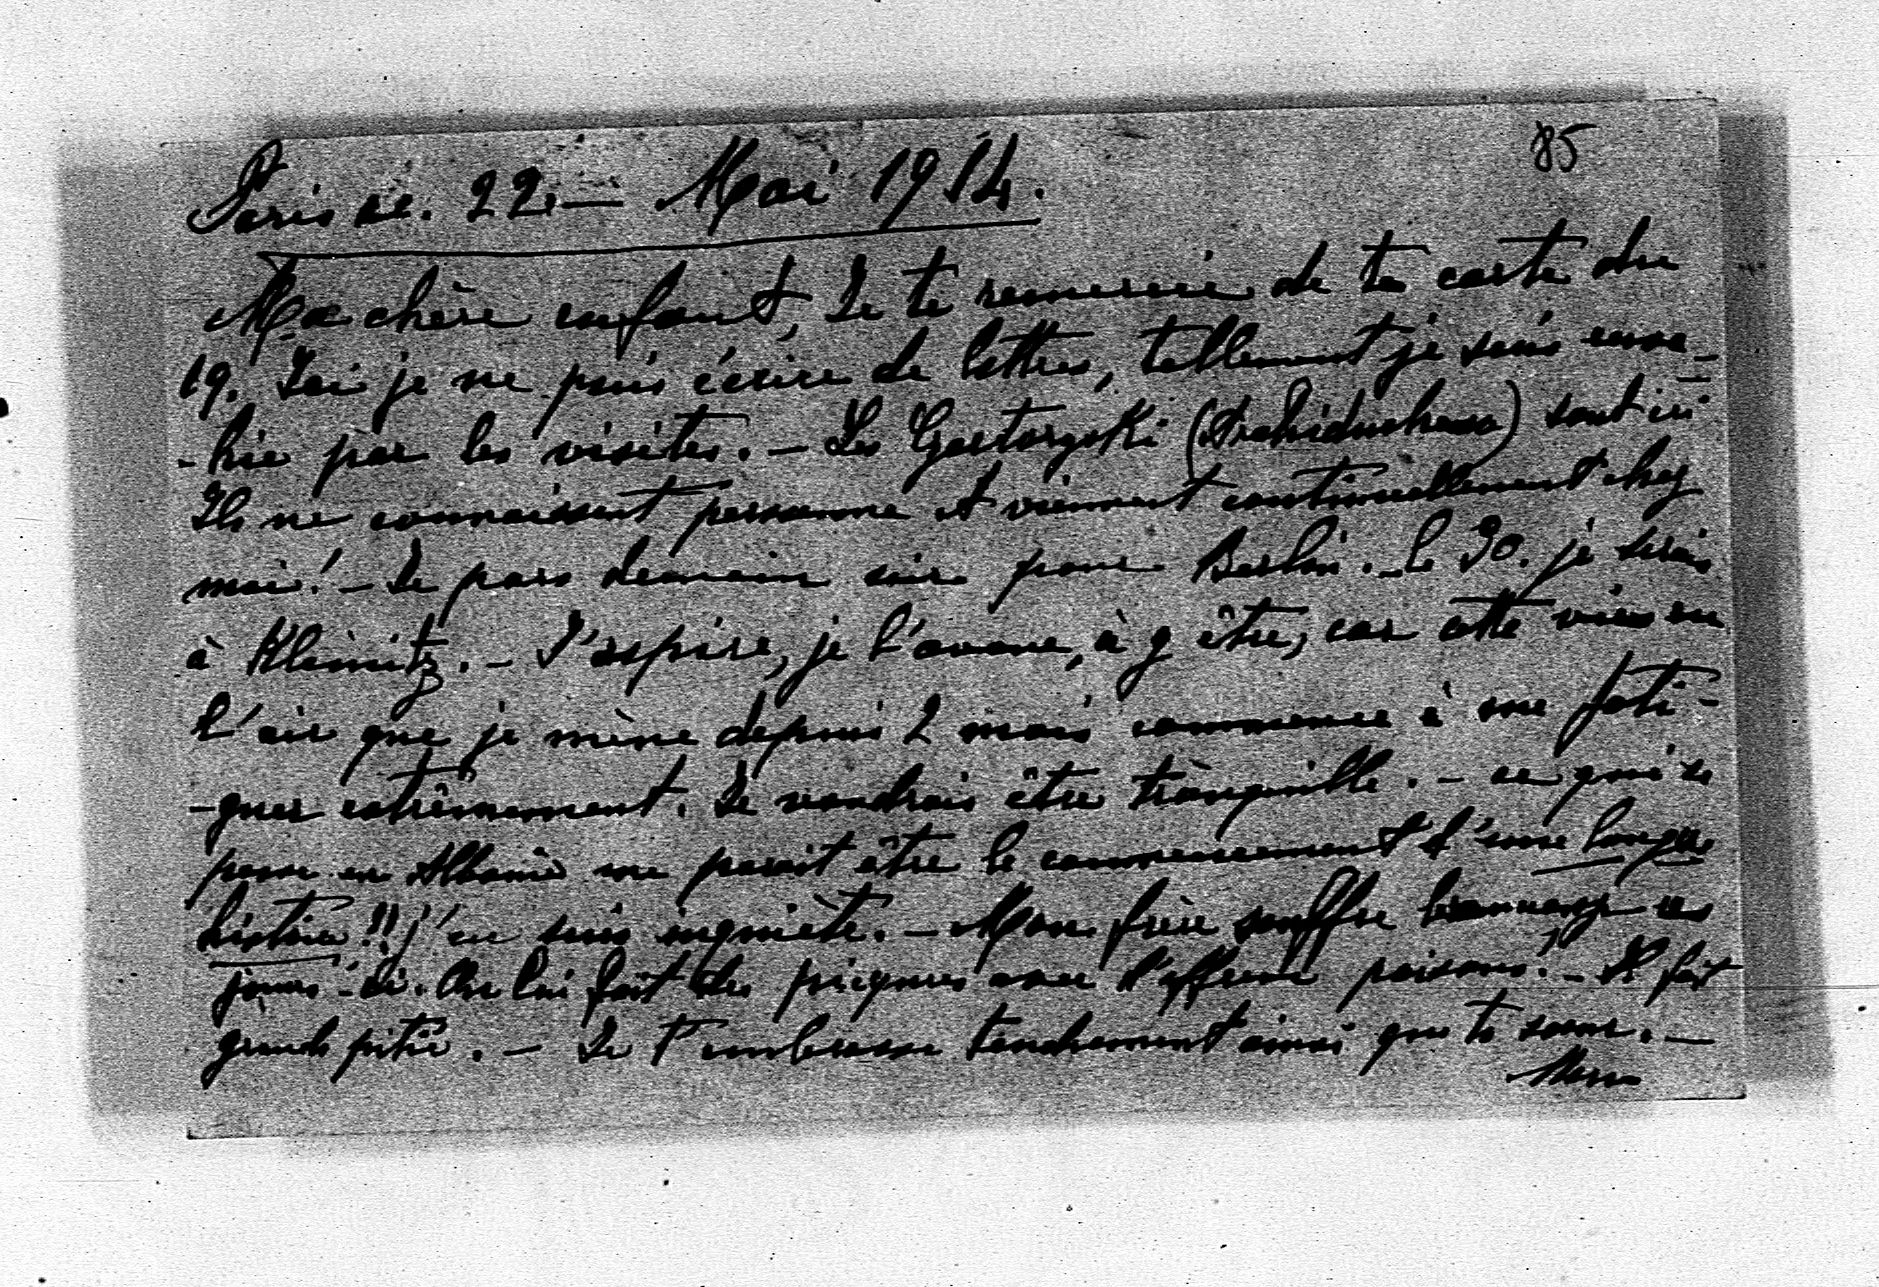 85
Paris le. 22. — Mai 1914.
Ma chère enfant, Je te remercie de ta carte du
19. Ici je ne puis écrire de lettres, tellement je suis enva-
-hie par les visites. — Les Czartoryski (Archiduchesse) sont ici
Ils ne connaissent personne et viennent continuellement chez
moi! — Je pars demain soir pour Berlin. — le 30. je serai
à Klemitz. — J'aspire, je l'avoue, à y être, car cette vie en
l'air que je mène depuis 2 mois commence à me fati-
-guer extrêmement. Je voudrais être tranquille. — ce qui se
passe en Albanie me parait être le commencement d'une longue
histoire!! j'en suis inquiète. — Mon frère souffre beaucoup ces
jours-ci. On lui fait des piqures avec d'affreux poisons! — Il fait
grande pitié. — Je t'embrasse tendrement ainsi que ta sœur. —